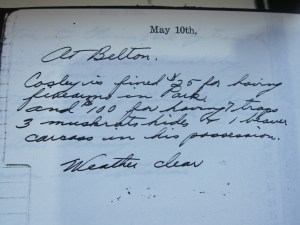 May 10th,
At Belton.
Cosley is fined $25 for having
firearms in Park.
and $100 for having 7 traps
3 muskrats hides & 1 beaver
carcass in his possession.
Weather clear